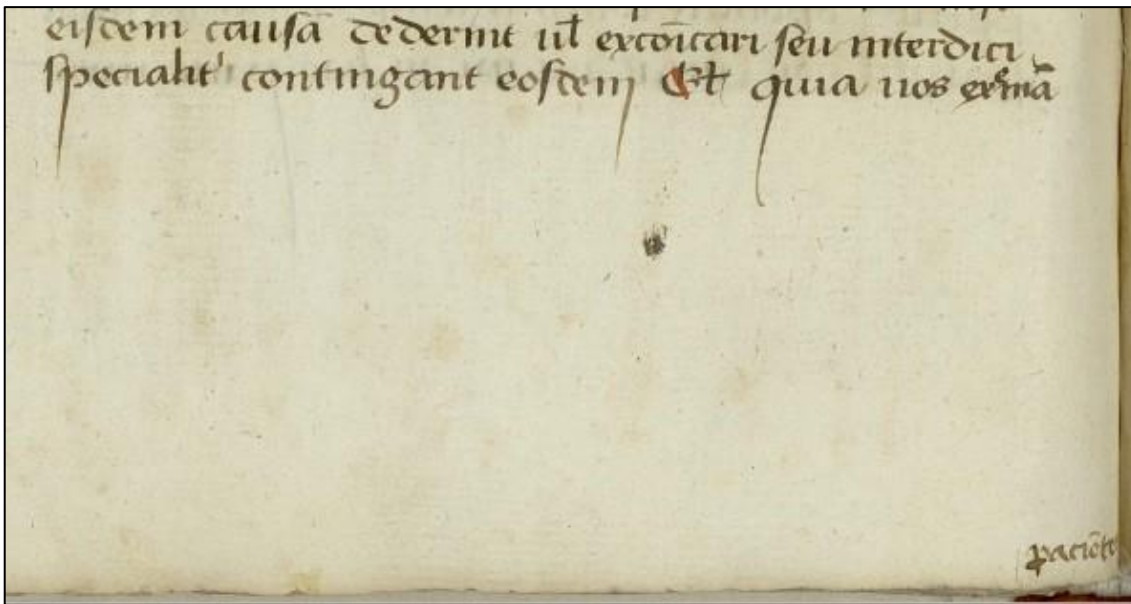 eisdem causā dederint ul̄ excōicari seu interdici
specialit' contingant eosdem Et quia nos
paciēt